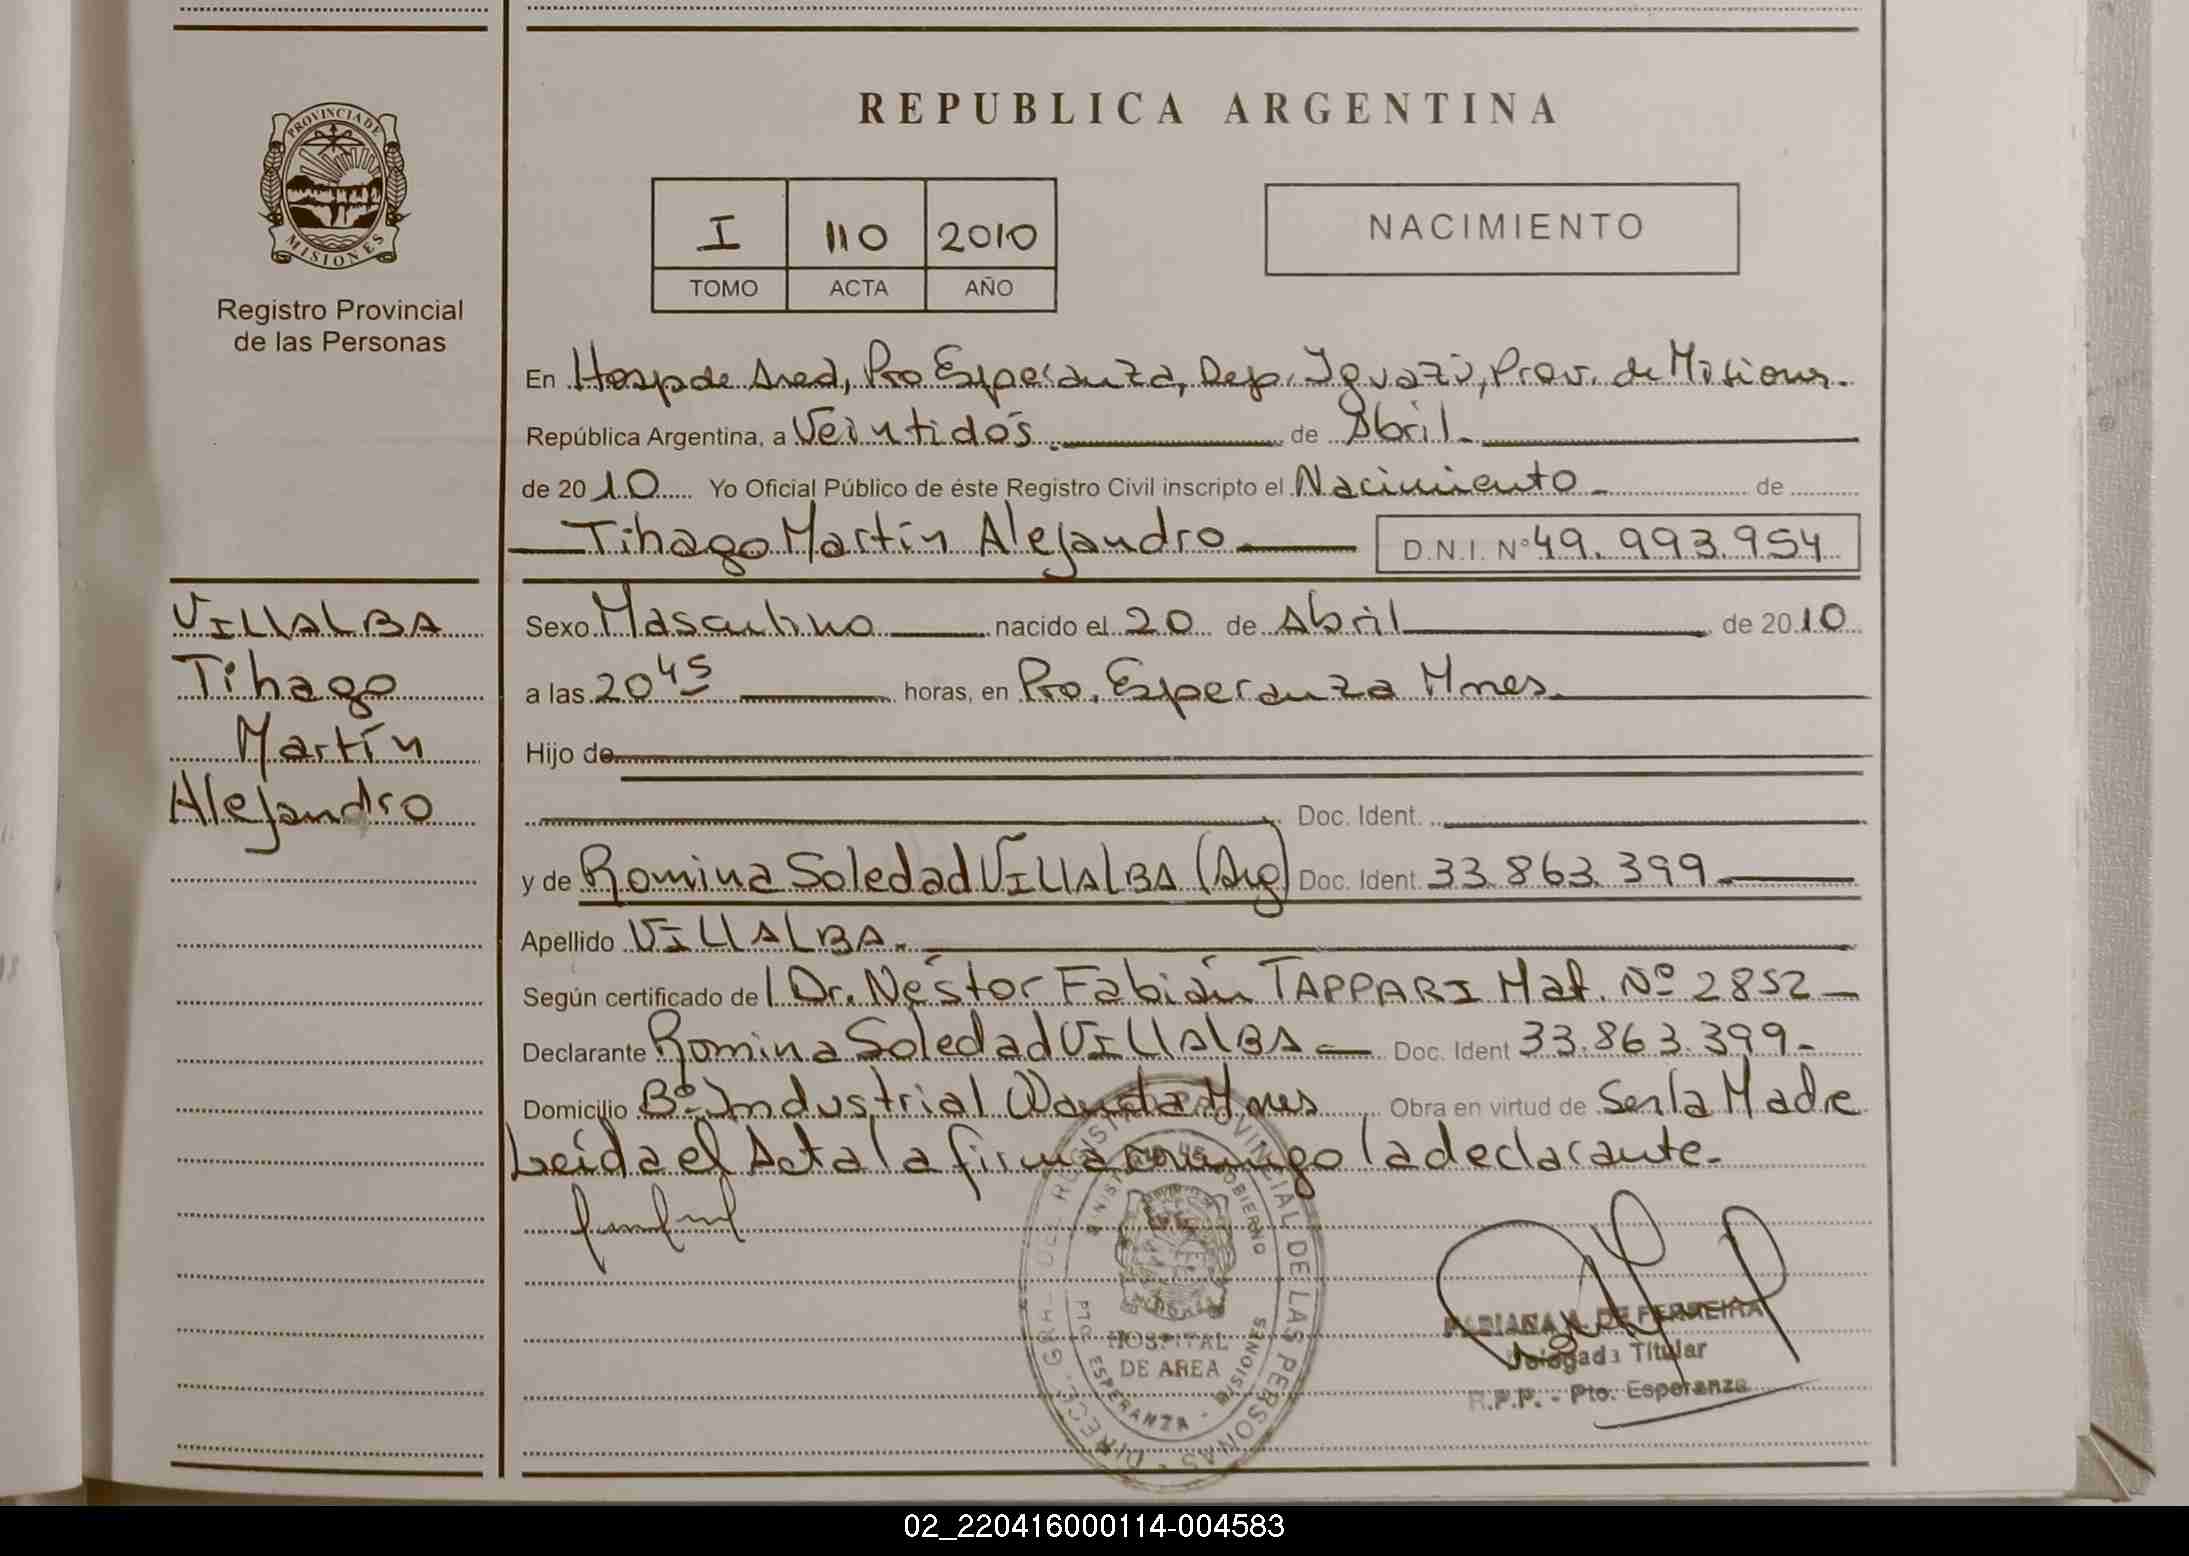 PROVINCIA DE
MISIONES
Registro Provincial
de las Personas
REPUBLICA ARGENTINA
I 110 2010
TOMO ACTA AÑO
NACIMIENTO
En Hosp de Area, Pto Esperanza, Dep. Iguazú, Prov. de Misiones.
República Argentina, a Veintidós. de Abril.
de 2010 Yo Oficial Público de éste Registro Civil inscripto el Nacimiento de
Tihago Martín Alejandro D.N.I. Nº 49.993.954
VILLALBA
Tihago
Martín
Alejandro
Sexo Masculino nacido el 20 de Abril de 2010
a las 20 45 horas, en Pto. Esperanza Mnes.
Hijo de
Doc. Ident.
y de Romina Soledad VILLALBA (Arg) Doc. Ident. 33.863.399
Apellido VILLALBA.
Según certificado del Dr. Néstor Fabián TAPPARI Mat. Nº 2852
Declarante Romina Soledad VILLALBA Doc. Ident 33.863.399.
Domicilio Bº Industrial Wanda Mnes Obra en virtud de Ser la Madre
Leída el Acta la firma conmigo la declarante.
HOSPITAL
DE AREA
PTO. ESPERANZA - MISIONES
FABIANA DE FERREIRA
Delegada Titular
R.P.P. - Pto. Esperanza
02_220416000114-004583